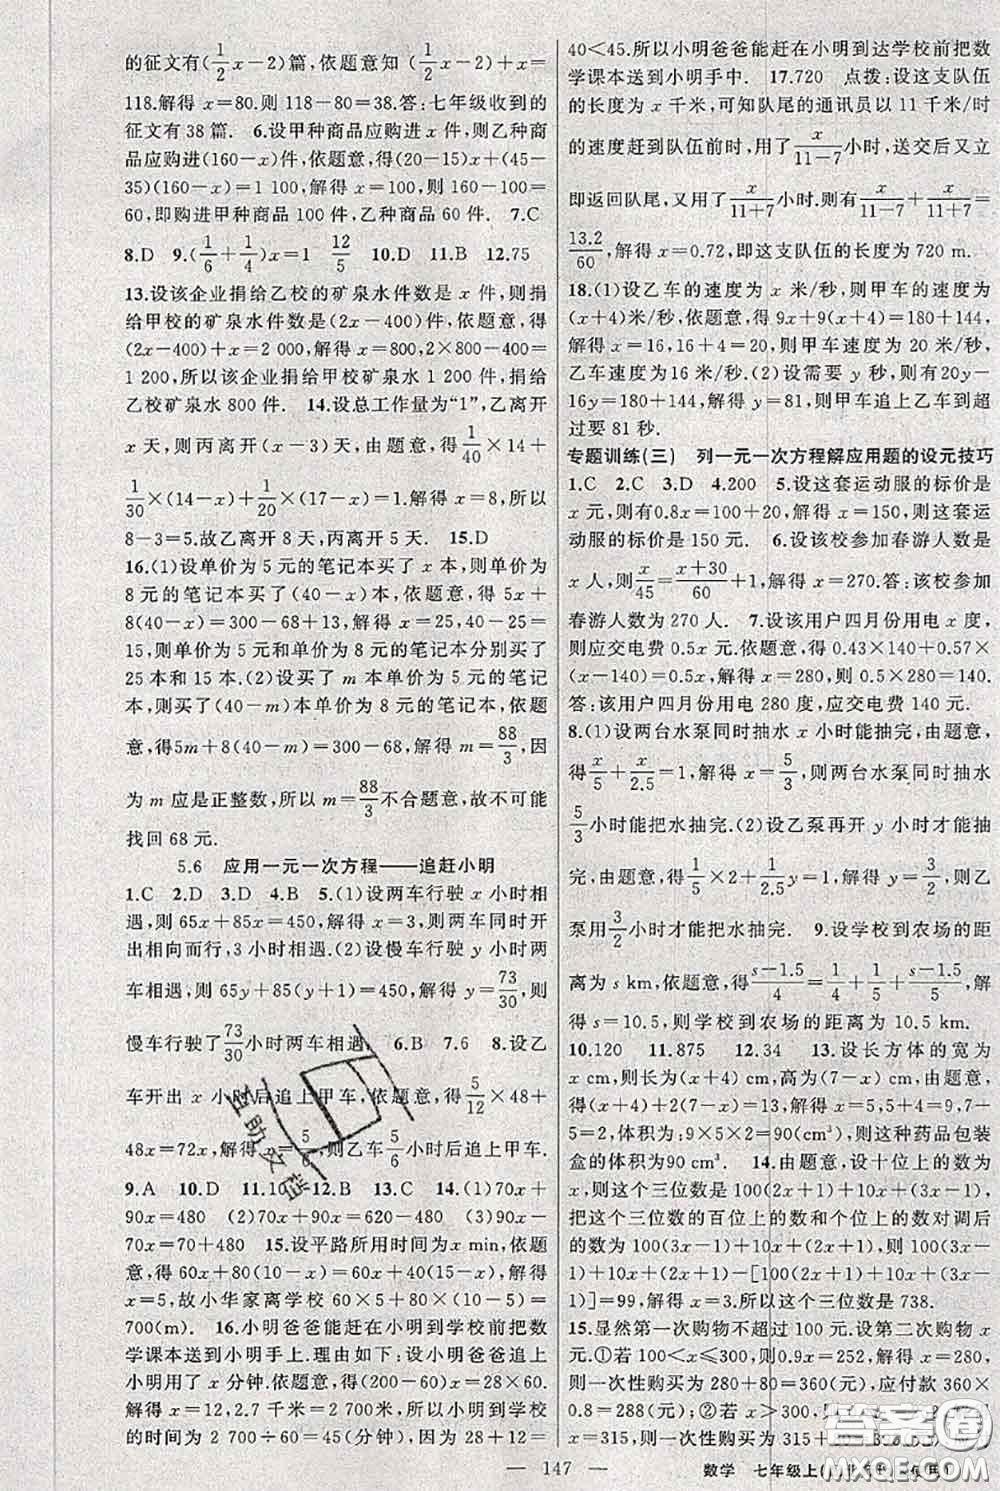 的征文有(1/2x-2)篇,依题意知(1/2x-2)+x=
118.解得x=80.则118-80=38.答:七年级收到的
征文有38篇. 6.设甲种商品应购进x件,则乙种商
品应购进(160-x)件,依题意,得(20-15)x+(45-
35)(160-x)=1 100,解得x=100,160-x=160-100=
60,即购进甲种商品100件,乙种商品60件. 7.C
8.D 9.(1/6+1/4)x=1 12/5 10.D 11.B 12.75
13.设该企业捐给乙校的矿泉水件数是x件,则捐
给甲校的矿泉水件数是(2x-400)件,依题意,得
(2x-400)+x=2 000,解得x=800,2x-400=
1 200,所以该企业捐给甲校矿泉水1 200件,捐给
乙校矿泉水800件. 14.设总工作量为“1”,乙离开
x天,则丙离开(x-3)天,由题意,得1/40×14+
1/30×(14-x)+1/20×(17-x)=1,解得x=8,所以
8-3=5.故乙离开8天,丙离开5天. 15.D
16.(1)设单价为5元的笔记本买了x本,则单价为
8元的笔记本买了(40-x)本,依题意,得5x+
8(40-x)=300-68+13,解得x=25,40-25=
15,则单价为5元和单价为8元的笔记本分别买了
25本和15本.(2)设买了m本单价为5元的笔记
本,则买了(40-m)本单价为8元的笔记本,依题
意,得5m+8(40-m)=300-68,解得m=88/3,因
为m应是正整数,所以m=88/3不合题意,故不可能
找回68元.
5.6 应用一元一次方程——追赶小明
1.C 2.D 3.D 4.B 5.(1)设两车行驶x小时相
遇,则65x+85x=450,解得x=3,则两车同时开
出相向而行,3小时相遇.(2)设慢车行驶y小时两
车相遇,则65y+85(y+1)=450,解得y=73/30,则
慢车行驶了73/30小时两车相遇. 6.B 7.6 8.设乙
车开出x小时后追上甲车,依题意,得5/12×48+
48x=72x,解得x=5/6,则乙车5/6小时后追上甲车.
9.A 10.D 11. 12.B 13.C 14.(1)70x+
90x=480 (2)70x+90x=680 (3)90x=
70x+480 15.设平路所用时间为x min,依题
意,得60x+80(10-x)=60x+40(15-x),解得
x=5,故小华家离学校60×5+80×(10-5)=
700(m). 16.小明爸爸能赶在小明到学校前把数
学课本送到小明手上.理由如下:设小明爸爸追上
小明用了x分钟.依题意,得(200-60)x=28×60.
解得x=12,2.7千米=2 700米,所以小明到学校
的时间为2 700÷60=45(分钟),由于28+12=
40<45.所以小明爸爸能赶在小明到达学校前把数
学课本送到小明手中. 17.720 点拨:设这支队伍
的长度为x千米,可知队尾的通讯员以11千米/时
的速度赶到队伍前时,用了x/(11-7)小时,送交后又立
即返回队尾,又用了x/(11+7)小时.则有x/(11-7)+x/(11+7)=
13.2/60,解得x=0.72,即这支队伍的长度为720 m.
18.(1)设乙车的速度为x米/秒,则甲车的速度为
(x+4)米/秒,依题意,得9x+9(x+4)=180+144,
解得x=16,16+4=20,则甲车速度为20米/秒,
乙车速度为16米/秒.(2)设需要y秒,则有20y-
16y=180+144,解得y=81,则甲车追上乙车到超
过要81秒.
专题训练(三) 列一元一次方程解应用题的设元技巧
1.C 2.C 3.D 4.200 5.设这套运动服的标价是
x元,则有0.8x=100+20,解得x=150,则这套运
动服的标价是150元. 6.设该校参加春游人数是
x人,则x/45=(x+30)/60+1,解得x=270.答:该校参加
春游人数为270人. 7.设该用户四月份用电x度,
则应交电费0.5x元.依题意,得0.43×140+0.57×
(x-140)=0.5x,解得x=280,则0.5x=140.
答:该用户四月份用电280度,应交电费140元.
8.(1)设两台水泵同时抽水x小时能抽完,由题意,
得x/5+x/2.5=1,解得x=5/3,则两台水泵同时抽水
5/3小时能把水抽完.(2)设乙泵再开y小时才能抽
完,由题意,得1/5×2+1/2.5y=1,解得y=3/2,则乙
泵用3/2小时才能把水抽完. 9.设学校到农场的距
离为s km,依题意,得(s-1.5)/4=1/4+1.5/5+(s-1.5)/5,解
得s=10.5,则学校到农场的距离为10.5 km.
10.120 11.875 12.34 13.设长方体的宽为
x cm,则长为(x+4)cm,高为(7-x)cm,依题意,得
2(7-x)+x+4+x... 
x=5,x+4=9,7-
5=2,体积为:9×5×2=90(cm³),则这种药品包装
盒的体积为90 cm³. 14.由题意,设十位上的数为
x,则这个三位数是100(3x-1)+10x+(x+1),把
这个三位数的百位上的数和个位上的数对调后
的数为100(x+1)+10x+(3x-1),依题意,得
100(3x-1)+10x+(x+1)-[100(x+1)+10x+(3x-
1)]=99,解得x=3.所以这个三位数是738.
15.显然第一次购物不超过100元.设第二次购物x
元.①若100<x≤300,则0.9x=252,解得x=280,
则一次性购买为280+80=360(元),应付款360×
0.8=288(元);②若x>300,则
x=315,则一次性购买为315+
147
数学 七年级上
互助文档
答案圈